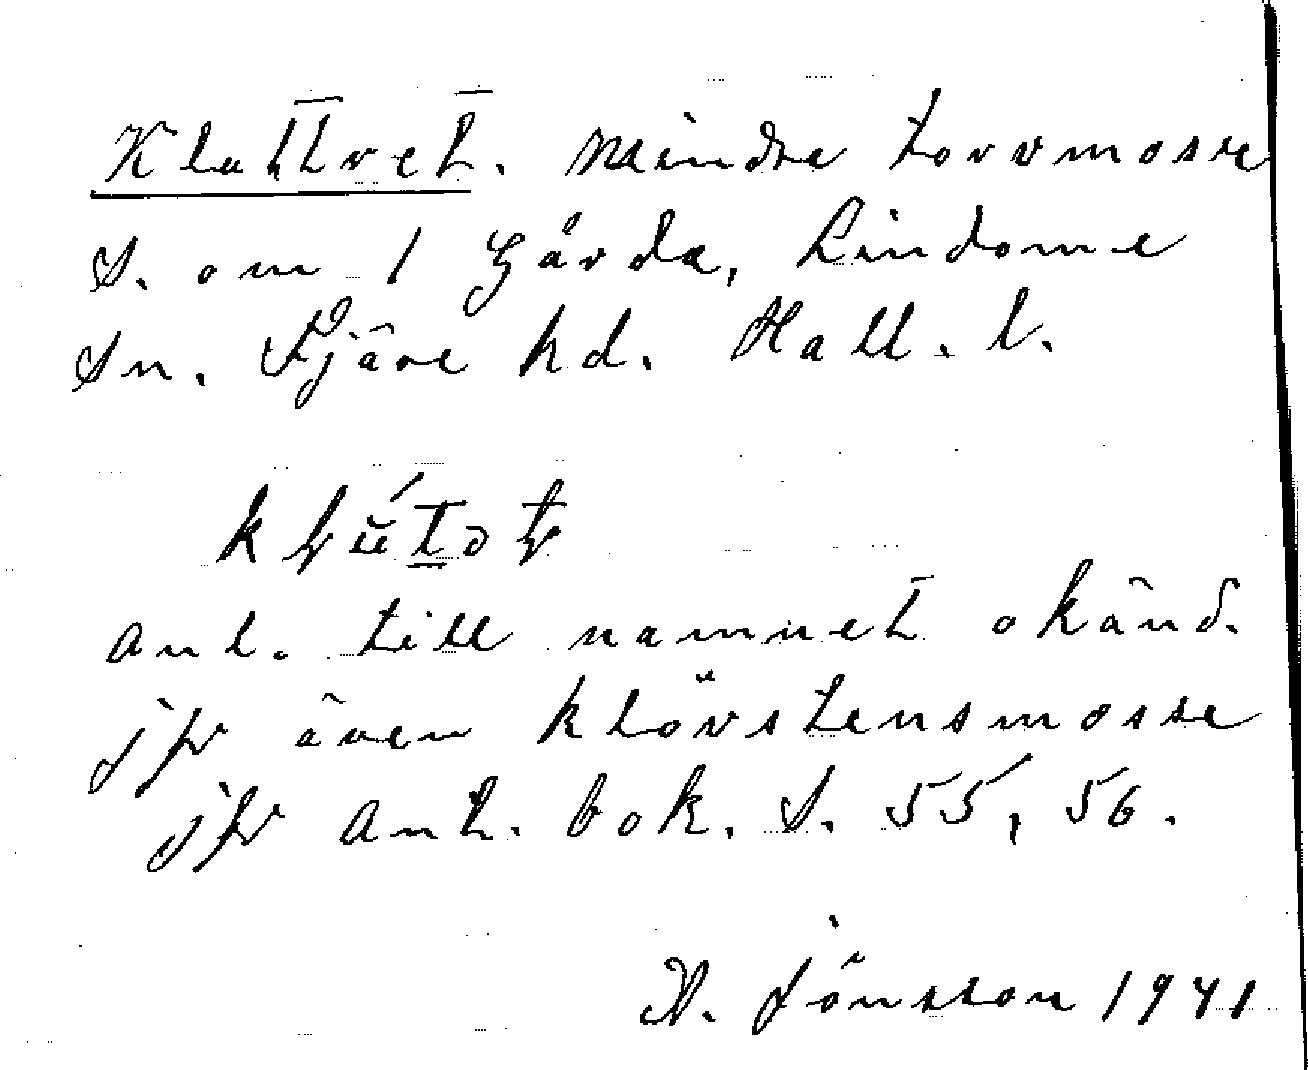 Klattret. Mindre torvmosse
S. om 1 Gårda, Lindome
Sn. Fjäre hd. Hall. l.
anl. till namnet okänd.
jfr även klövstensmosse
jfr Ant. bok. S. 55, 56.
Jönsson 1941